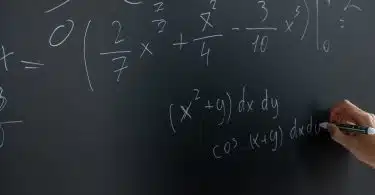 x = 0 ( 2/7 x^7/2 + x^2/4 - 3/10 x^5 ) |_0 =
(x^2 + y) dx dy
cos (x + y) dx dy